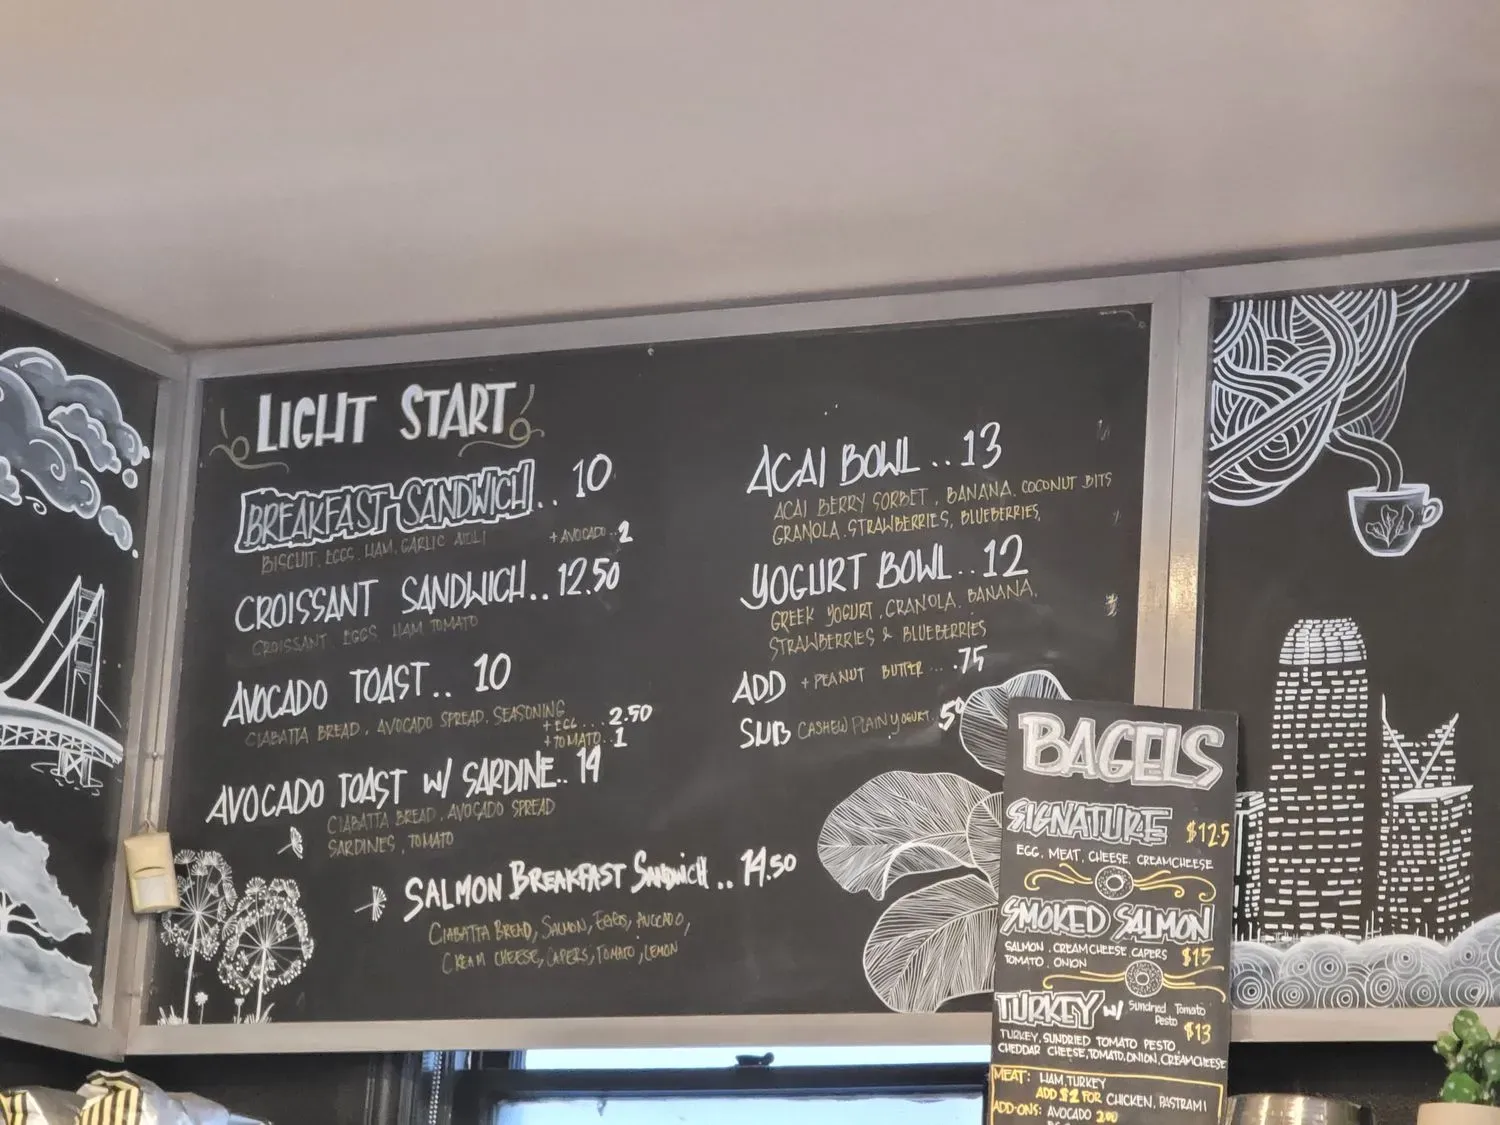 LIGHT START
BREAKFAST SANDWICH.. 10
BISCUIT, EGGS, HAM, GARLIC AIOLI
+ AVOCADO..2
CROISSANT SANDWICH..12.50
CROISSANT, EGGS, HAM TOMATO
AVOCADO TOAST.. 10
CIABATTA BREAD, AVOCADO SPREAD, SEASONING
+ EGG ...2.50
+ TOMATO..1
AVOCADO TOAST W/ SARDINE.. 14
CIABATTA BREAD, AVOCADO SPREAD
SARDINES, TOMATO
SALMON BREAKFAST SANDWICH .. 14.50
CIABATTA BREAD, SALMON, EGGS, AVOCADO,
CREAM CHEESE, CAPERS, TOMATO, LEMON
ACAI BOWL ..13
ACAI BERRY SORBET, BANANA, COCONUT BITS
GRANOLA, STRAWBERRIES, BLUEBERRIES,
YOGURT BOWL..12
GREEK YOGURT, GRANOLA, BANANA,
STRAWBERRIES & BLUEBERRIES
ADD + PEANUT BUTTER ... .75
SUB CASHEW PLAIN YOGURT.
BAGELS
SIGNATURE $12.5
EGG, MEAT, CHEESE, CREAMCHEESE
SMOKED SALMON
SALMON, CREAMCHEESE, CAPERS $15
TOMATO, ONION
TURKEY W/ Sundried Tomato
Pesto $13
TURKEY, SUNDRIED TOMATO PESTO,
CHEDDAR CHEESE, TOMATO, ONION, CREAMCHEESE
MEAT: HAM, TURKEY
ADD $2 FOR CHICKEN, PASTRAMI
ADD-ONS: AVOCADO 2.00